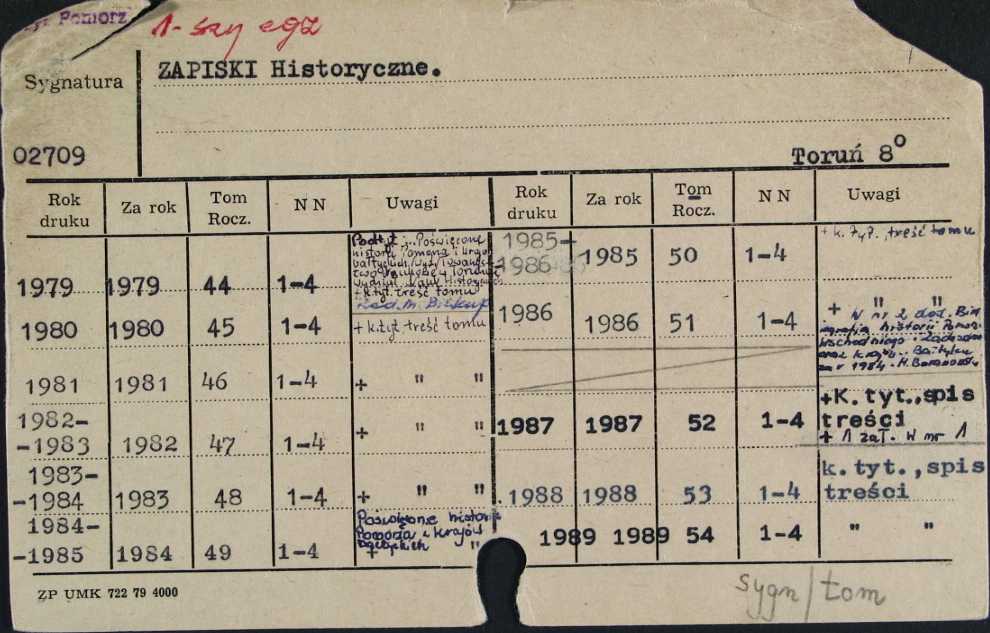 Pomorz
1-szy egz
Sygnatura
ZAPISKI Historyczne.
02709
Toruń 8°
Rok druku Za rok Tom Rocz. NN Uwagi Rok druku Za rok Tom Rocz. NN Uwagi
1979 1979 44 1-4
Podtyt.: Poświęcone
historii Pomorza i krajów
bałtyckich
+ k.tyt. treść tomu
red. M. Biskup
1980 1980 45 1-4 + k.tyt. treść tomu
1981 1981 46 1-4 + " "
1982-
-1983 1982 47 1-4 + " "
1983-
-1984 1983 48 1-4 + " "
1984-
-1985 1984 49 1-4
Poświęcone historii
Pomorza i krajów
bałtyckich
+ "
1985-
-1986 1985 50 1-4 + k. tyt., treść tomu
1986 1986 51 1-4 + " "
W nr 2 dod. Bib
historii Pomorza
Wschodniego i Zachodn
oraz krajów Bałtyku
za r 1984 - H. Baranowski
1987 1987 52 1-4
+K. tyt., spis
treści
+ 1 zał. W nr 1
1988 1988 53 1-4
k. tyt., spis
treści
1989 1989 54 1-4 " "
ZP UMK 722 79 4000
sygn/tom